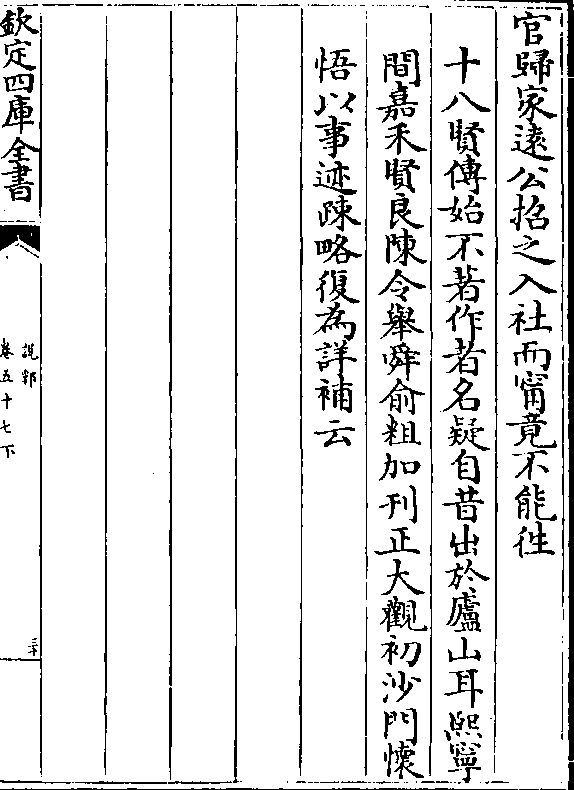 官歸家遠公招之入社而甯竟不能徃
十八賢傳始不著作者名疑自昔出於廬山耳熙寧
間嘉禾賢良陳令舉舜俞粗加刋正大觀初沙門懷
悟以事迹疎略復為詳補云
欽定四庫全書
說郛
卷五十七下